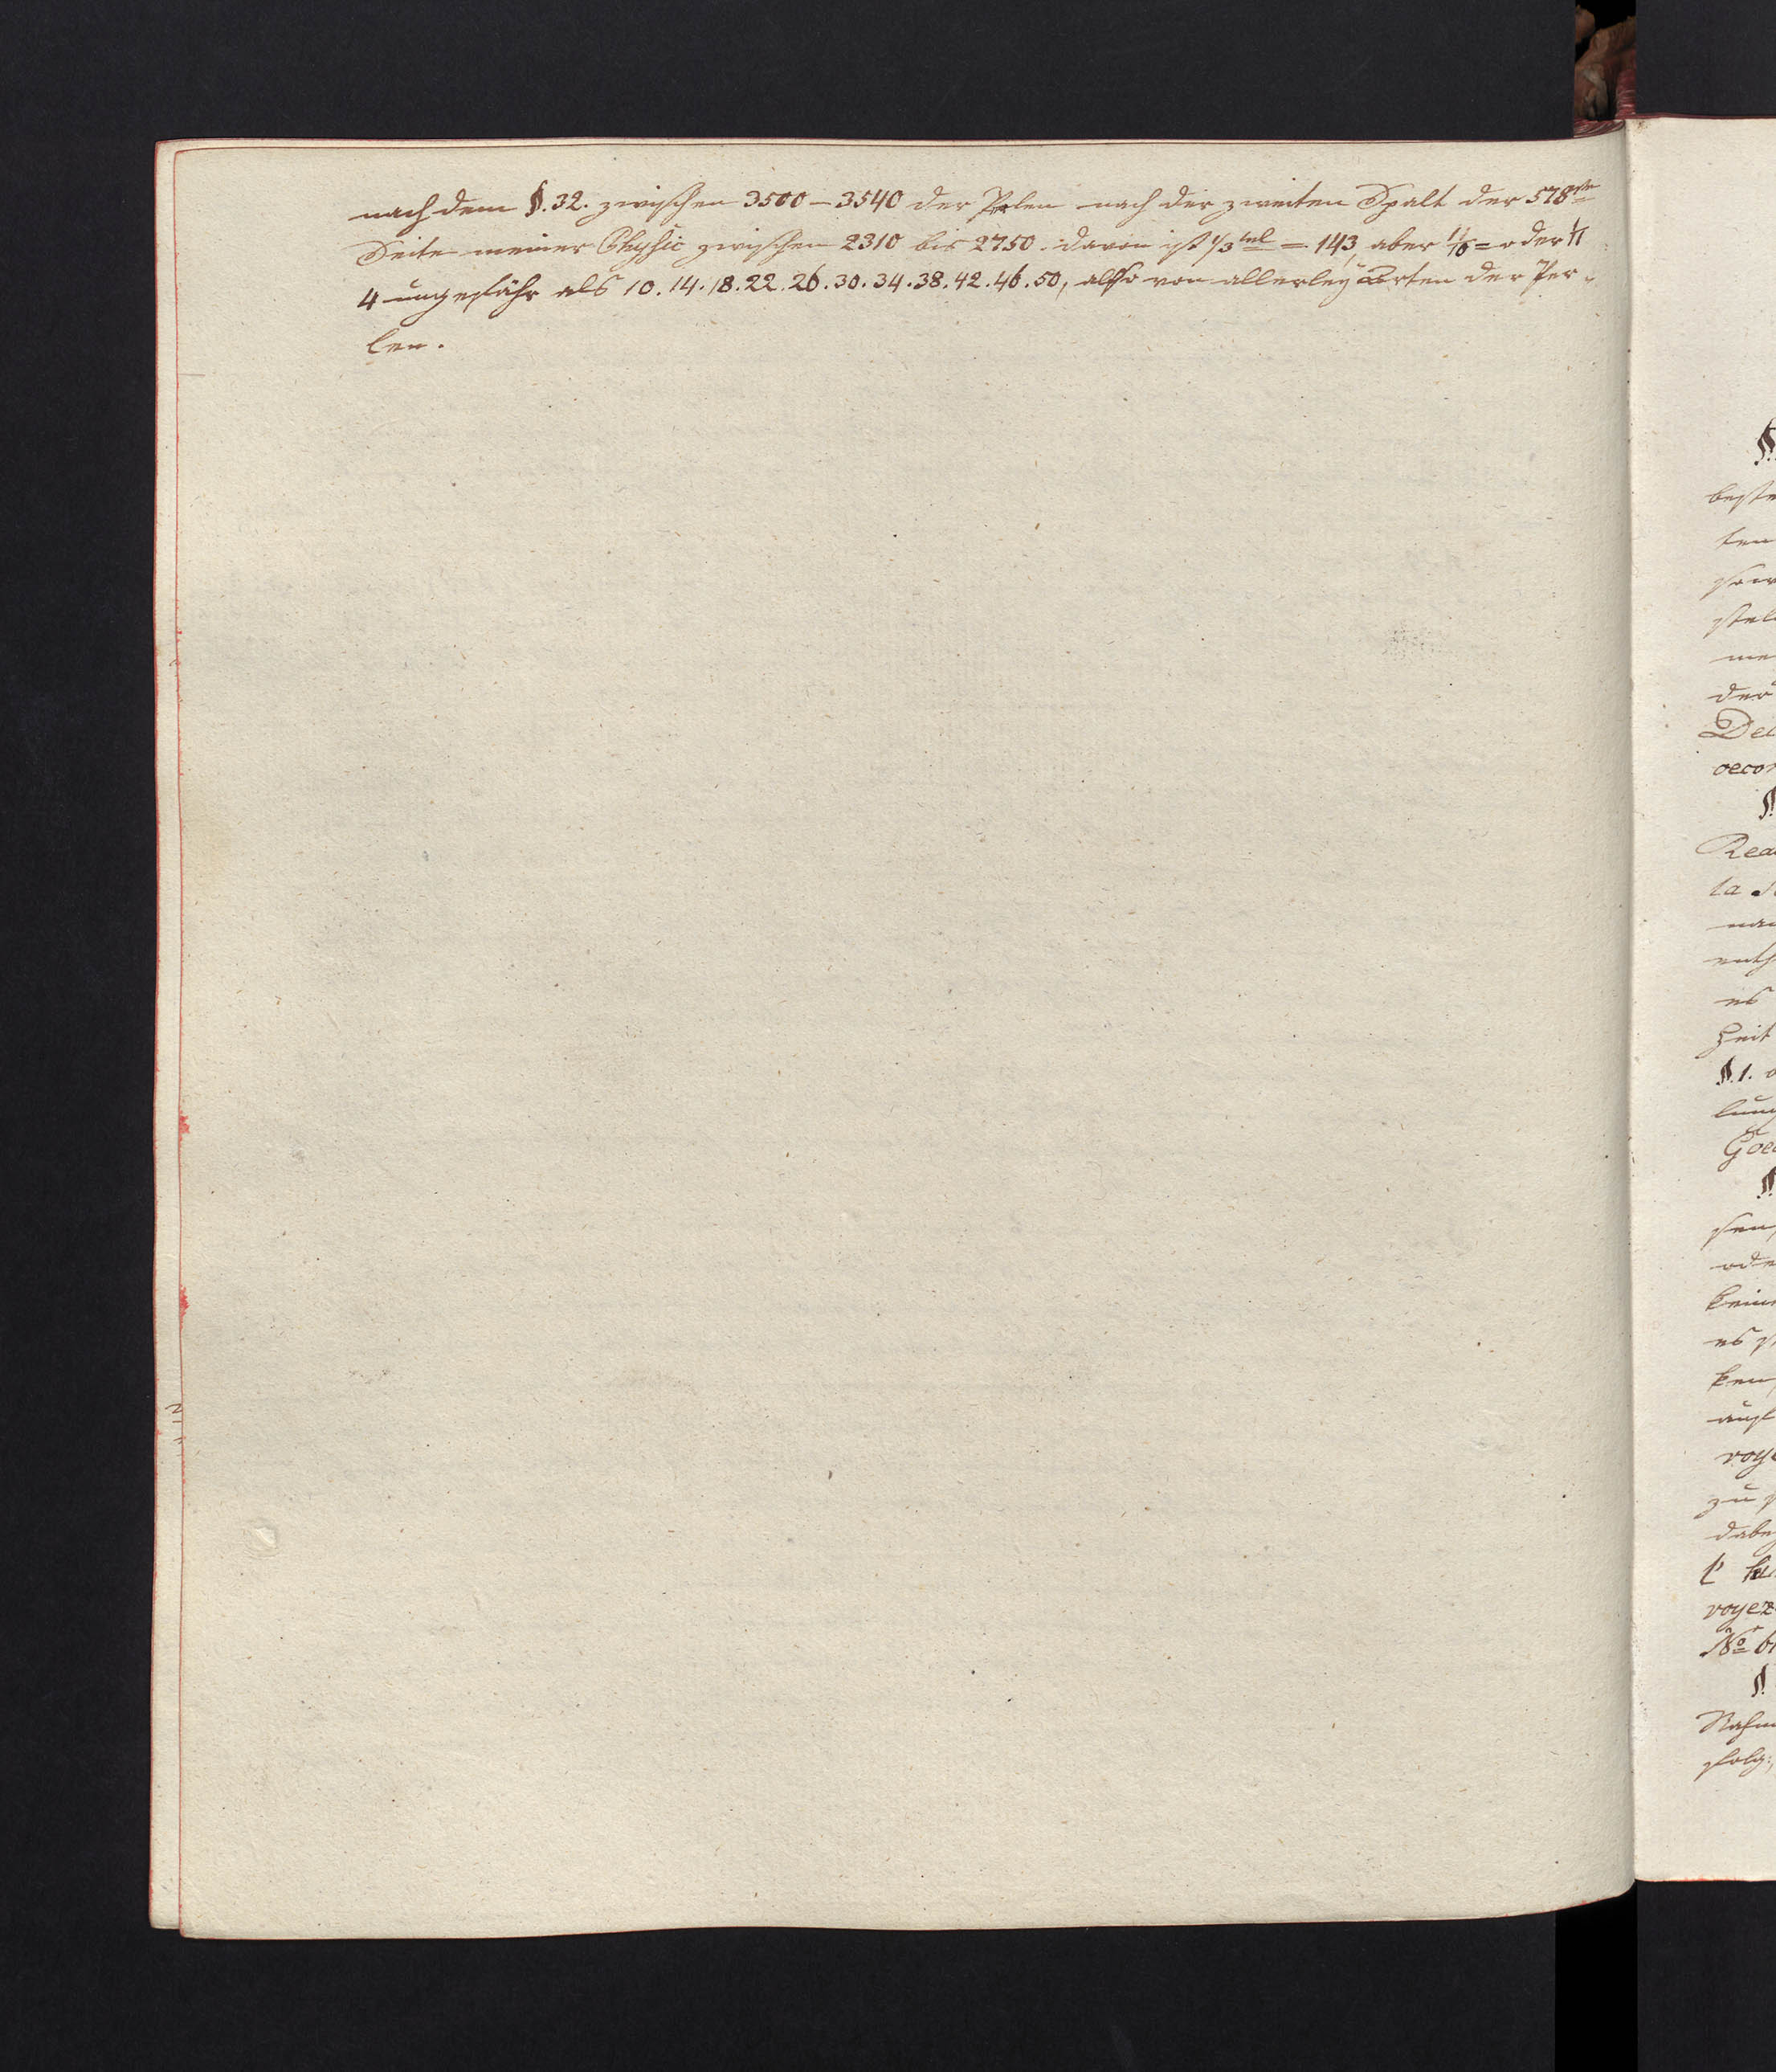 nach dem §. 32. zwischen 3500 — 3540 der Perlen nach der zweiten Spalt der 578ste
Seite meiner Physic zwischen 2310 bis 2750. davon ist 1/3tel = 143, aber 1/10 = oder 11
4 ungefähr als 10. 14. 18. 22. 26. 30. 34. 38. 42. 46. 50, also von allerley Arten der Per-
len.
§.
beste
ten
stel
me
der
De
oecon
§.
Rea
la
nach
enth
es
Zeit
§. 1.
lung
Goe
§.
sen,
ode
keine
es
ken
voye
zu
dabe
l'
voyez
No 6
§.
Nahm
folg.